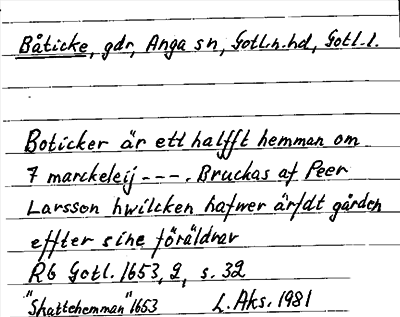 Båticke, gdr, Anga sn, Gotl.n.hd, Gotl.l.
Boticker är ett halfft hemman om
7 marckeleij ---. Bruckas af Peer
Larsson hwilcken hafwer ärfdt gården
effter sine föräldrar
Rb Gotl. 1653, 2, s. 32
"Skattehemman" 1653 L. Aks. 1981